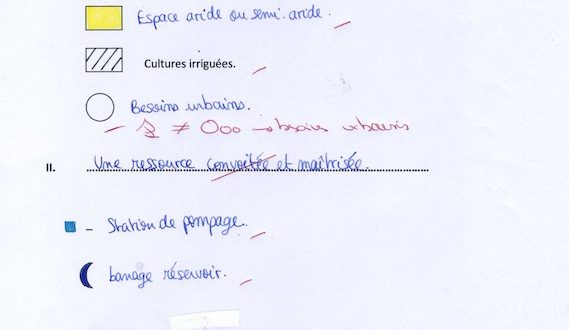 Espace aride ou semi-aride.
Cultures irriguées.
Besoins urbains.
≠ besoins urbains
II. Une ressource convoitée et maîtrisée.
- Station de pompage.
barrage réservoir.